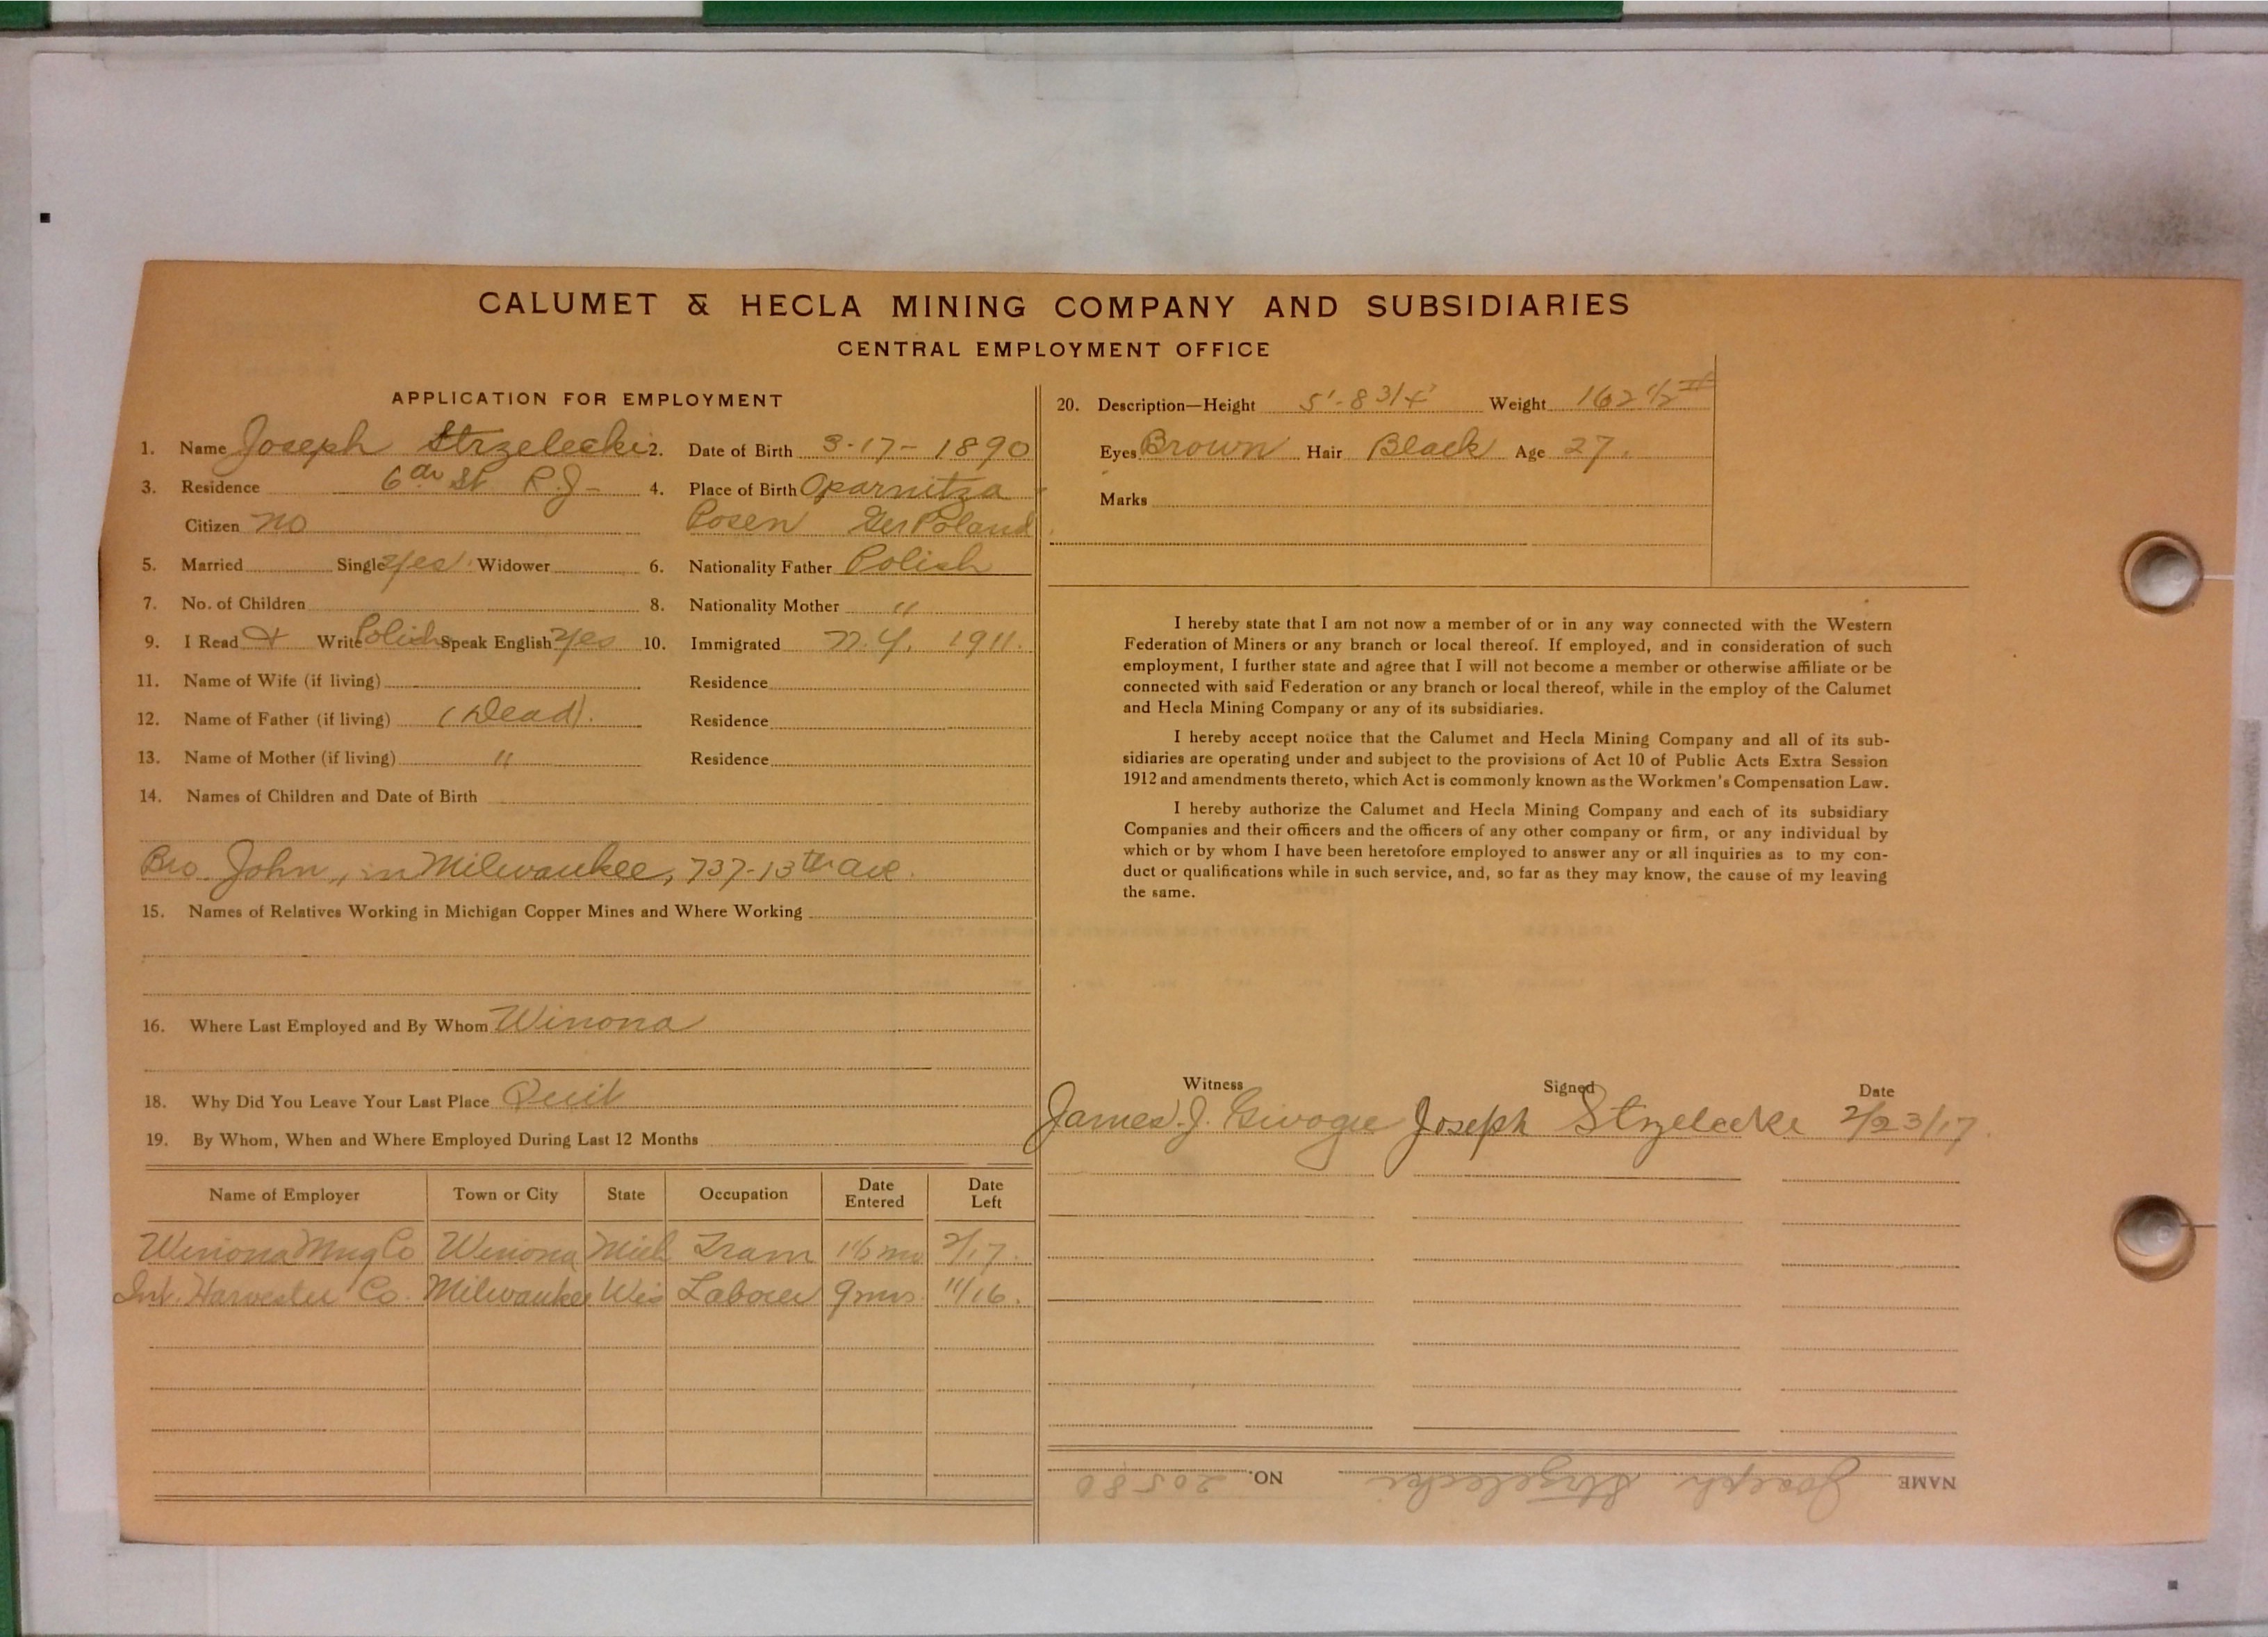 CALUMET & HECLA MINING COMPANY AND SUBSIDIARIES
CENTRAL EMPLOYMENT OFFICE
APPLICATION FOR EMPLOYMENT
1. Name Joseph Strzelecki 2. Date of Birth 3-17-1890
3. Residence 6th St R.J- 4. Place of Birth Oparnitza
Citizen no Posen Ger Poland
5. Married Single yes Widower 6. Nationality Father Polish
7. No. of Children 8. Nationality Mother "
9. I Read + Write Polish Speak English yes 10. Immigrated N.Y. 1911.
11. Name of Wife (if living) Residence
12. Name of Father (if living) (Dead). Residence
13. Name of Mother (if living) " Residence
14. Names of Children and Date of Birth
Bro. John, in Milwaukee, 737-13th ave.
15. Names of Relatives Working in Michigan Copper Mines and Where Working
16. Where Last Employed and By Whom Winona
18. Why Did You Leave Your Last Place Quit
19. By Whom, When and Where Employed During Last 12 Months
Name of Employer Town or City State Occupation Date Entered Date Left
Winona Mng Co Winona Mich Tram 1 1/2 mo 2/17.
Int. Harvester Co. Milwaukee Wis Laborer 9 mos. 11/16.
20. Description—Height 5'-8 3/4" Weight 162 1/2 #
Eyes Brown Hair Black Age 27.
Marks
I hereby state that I am not now a member of or in any way connected with the Western
Federation of Miners or any branch or local thereof. If employed, and in consideration of such
employment, I further state and agree that I will not become a member or otherwise affiliate or be
connected with said Federation or any branch or local thereof, while in the employ of the Calumet
and Hecla Mining Company or any of its subsidiaries.
I hereby accept notice that the Calumet and Hecla Mining Company and all of its sub-
sidiaries are operating under and subject to the provisions of Act 10 of Public Acts Extra Session
1912 and amendments thereto, which Act is commonly known as the Workmen's Compensation Law.
I hereby authorize the Calumet and Hecla Mining Company and each of its subsidiary
Companies and their officers and the officers of any other company or firm, or any individual by
which or by whom I have been heretofore employed to answer any or all inquiries as to my con-
duct or qualifications while in such service, and, so far as they may know, the cause of my leaving
the same.
Witness Signed Date
James J. Joseph Strzelecke 2/23/17.
NAME Joseph Strzelecki NO. 20580